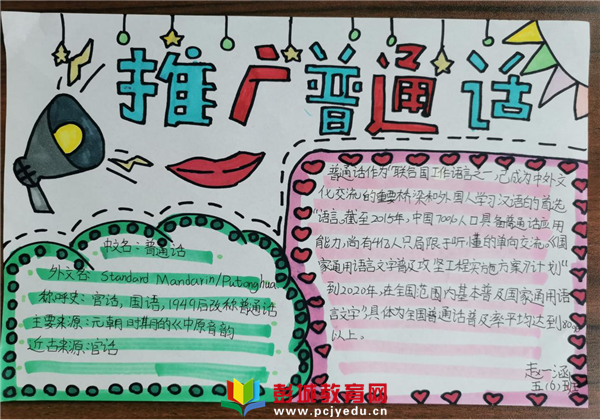 推广普通话
普通话作为"联合国工作语言之一,已成为中外文
化交流的重要桥梁和外国人学习汉语的首选
语言。截至2015年,中国70%人口具备普通话应用
能力,尚有4亿人只局限于听懂的单向交流。《国
家通用语言文字普及攻坚工程实施方案》计划"
到2020年,在全国范围内基本普及国家通用语
言文字》具体为全国普通话普及率平均达到80%
以上。
赵一涵
五(6)班
中文名:普通话
外文名:Standard Mandarin/Putonghua
称呼史:官话,国语,1949后改称普通话
主要来源:元朝《中原音韵
近古来源:官话
彭城教育网
www.pcjyedu.cn